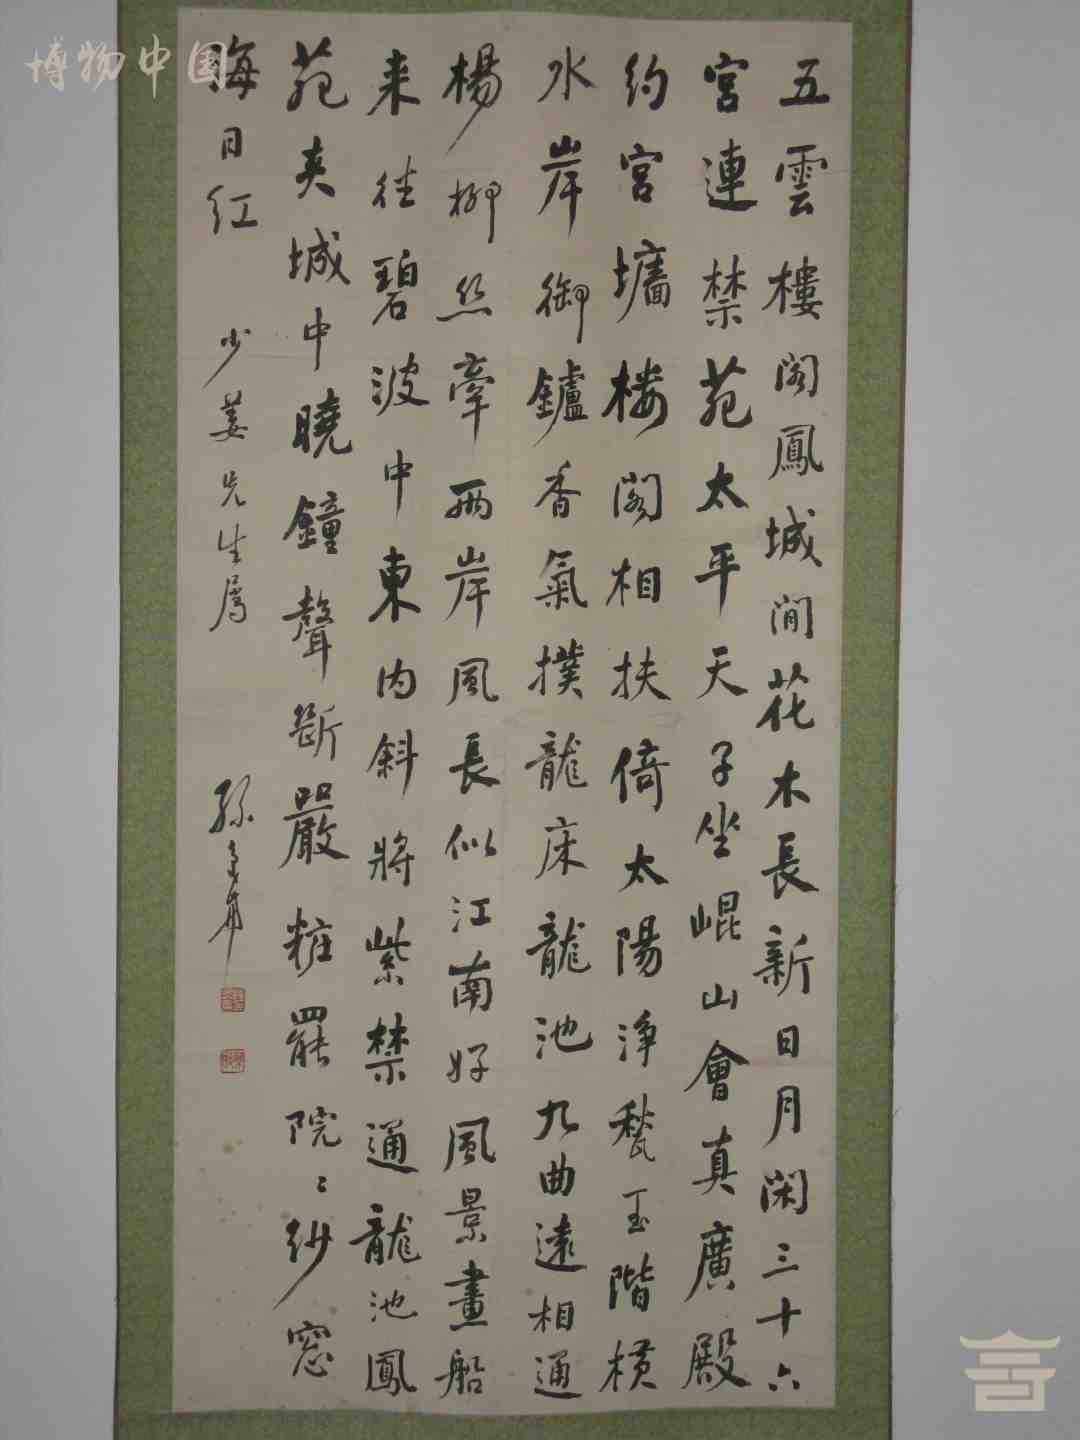 博物中国
五雲樓閣鳳城間花木長新日月閑三十六
宮連禁苑太平天子坐崐山會真廣殿
約宮牆樓閣相扶倚太陽淨甃玉階橫
水岸御鑪香氣撲龍床龍池九曲遠相通
楊柳絲牽兩岸風長似江南好風景畫船
来往碧波中東内斜將紫禁通龍池鳳
苑夾城中曉鐘聲斷嚴粧罷院〻紗窓
海日红
少姜先生属
孫